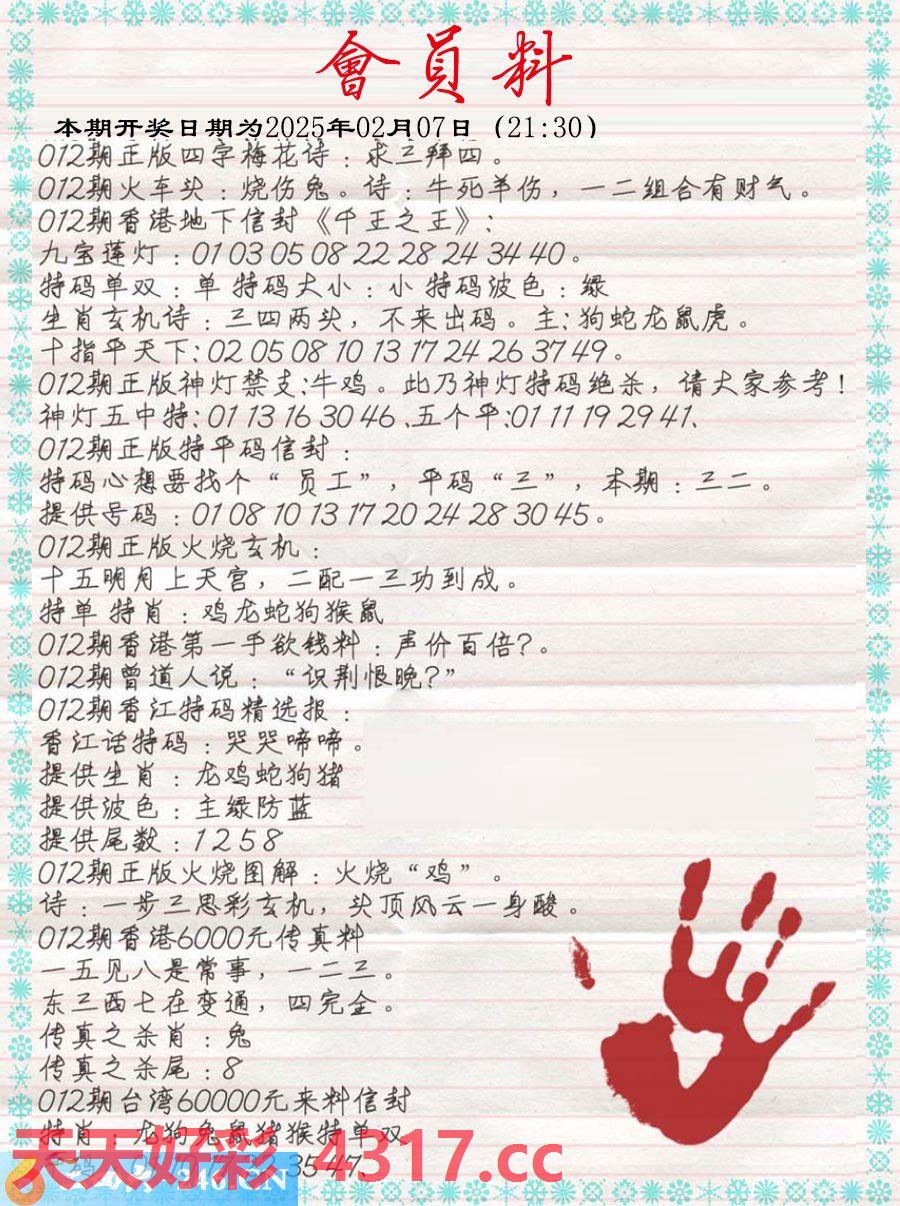 會員料
本期开奖日期为2025年02月07日（21:30）
012期正版四字梅花诗：求三拜四。
012期火车头：烧伤兔。诗：牛死羊伤，一二组合有财气。
012期香港地下信封《千王之王》:
九宝莲灯：01 03 05 08 22 28 24 34 40。
特码单双：单 特码大小：小 特码波色：绿
生肖玄机诗：三四两头，不来出码。主:狗蛇龙鼠虎。
十指平天下:02 05 08 10 13 17 24 26 37 49。
012期正版神灯禁支:牛鸡。此乃神灯特码绝杀，请大家参考!
神灯五中特:01 13 16 30 46 .五个平:01 11 19 29 41、
012期正版特平码信封：
特码心想要找个“员工”，平码“三”，本期：三二。
提供号码：01 08 10 13 17 20 24 28 30 45。
012期正版火烧玄机：
十五明月上天宫，二配一三功到成。
特单 特肖：鸡龙蛇狗猴鼠
012期香港第一手欲钱料：声价百倍?。
012期曾道人说：“识荆恨晚?”
012期香江特码精选报：
香江话特码：哭哭啼啼。
提供生肖：龙鸡蛇狗猪
提供波色：主绿防蓝
提供尾数：1 2 5 8
012期正版火烧图解：火烧“鸡”。
诗：一步三思彩玄机，头顶风云一身酸。
012期香港6000元传真料
一五见八是常事，一二三。
东三西七在变通，四完金。
传真之杀肖：兔
传真之杀尾：8
012期台湾60000元来料信封
特肖：龙狗兔鼠猪猴特单双
35 47
天天好彩 4317.cc